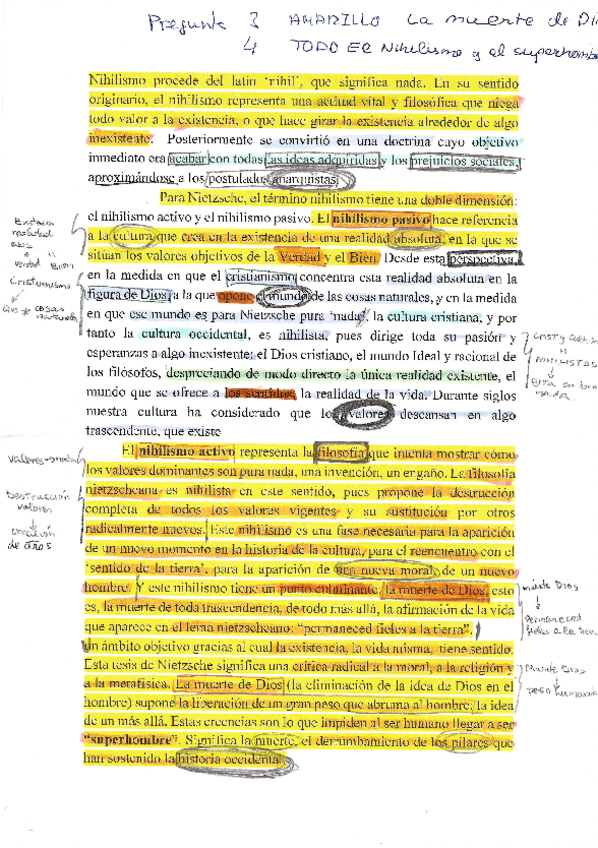 Pregunta 3 AMARILLO La muerte de Di
4 TODO El Nihilismo y el superhomb
Nihilismo procede del latín 'nihil', que significa nada. En su sentido
originario, el nihilismo representa una actitud vital y filosófica que niega
todo valor a la existencia, o que hace girar la existencia alrededor de algo
inexistente. Posteriormente se convirtió en una doctrina cuyo objetivo
inmediato era acabar con todas las ideas adquiridas y los prejuicios sociales,
aproximándose a los postulados anarquistas.
Para Nietzsche, el término nihilismo tiene una doble dimensión:
el nihilismo activo y el nihilismo pasivo. El nihilismo pasivo hace referencia
a la cultura que crea en la existencia de una realidad absoluta, en la que se
sitúan los valores objetivos de la Verdad y el Bien. Desde esta perspectiva,
en la medida en que el cristianismo concentra esta realidad absoluta en la
figura de Dios, a la que opone el mundo de las cosas naturales, y en la medida
en que ese mundo es para Nietzsche pura 'nada', la cultura cristiana, y por
tanto la cultura occidental, es nihilista, pues dirige toda su pasión y
esperanzas a algo inexistente: el Dios cristiano, el mundo Ideal y racional de
los filósofos, despreciando de modo directo la única realidad existente, el
mundo que se ofrece a los sentidos, la realidad de la vida. Durante siglos
nuestra cultura ha considerado que los valores descansan en algo
trascendente, que existe
El nihilismo activo representa la filosofía que intenta mostrar cómo
los valores dominantes son pura nada, una invención, un engaño. La filosofía
nietzscheana es nihilista en este sentido, pues propone la destrucción
completa de todos los valores vigentes y su sustitución por otros
radicalmente nuevos. Este nihilismo es una fase necesaria para la aparición
de un nuevo momento en la historia de la cultura, para el reencuentro con el
'sentido de la tierra', para la aparición de una nueva moral, de un nuevo
hombre. Y este nihilismo tiene un punto culminante, la muerte de Dios, esto
es, la muerte de toda trascendencia, de todo más allá, la afirmación de la vida
que aparece en el lema nietzscheano: "permaneced fieles a la tierra".
Un ámbito objetivo gracias al cual la existencia, la vida misma, tiene sentido.
Esta tesis de Nietzsche significa una crítica radical a la moral, a la religión y
a la metafísica. La muerte de Dios (la eliminación de la idea de Dios en el
hombre) supone la liberación de un gran peso que abruma al hombre, la idea
de un más allá. Estas creencias son lo que impiden al ser humano llegar a ser
"superhombre". Significa la muerte, el derrumbamiento de los pilares que
han sostenido la historia occidental.
verdad Bien
Cristianismo
NIHILISTAS
nada.
valores=nada
Destrucción
valores
creación
de otros
muerte Dios
Permaneced
fieles a la tierra
Muerte Dios
peso